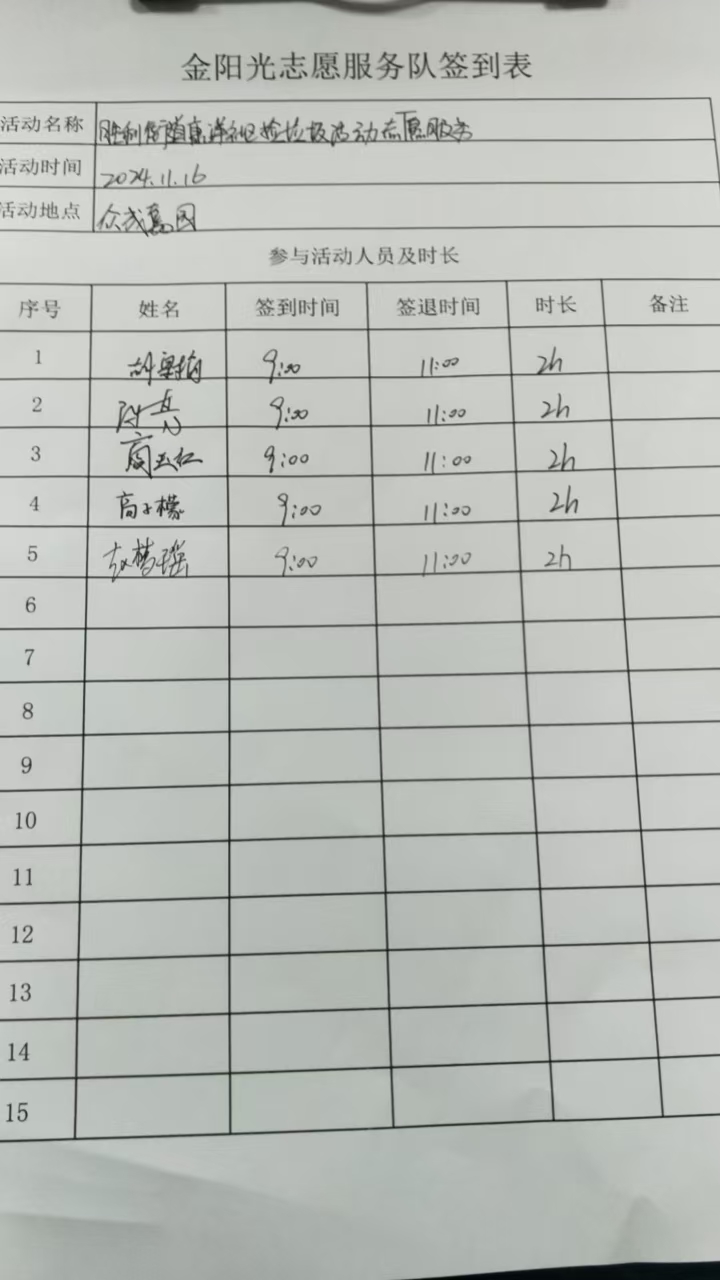 金阳光志愿服务队签到表
活动名称 胜利街道东洋社区捡垃圾活动志愿服务
活动时间 2024.11.16
活动地点 众成嘉园
参与活动人员及时长
序号 姓名 签到时间 签退时间 时长 备注
1 9:00 11:00 2h
2 9:00 11:00 2h
3 9:00 11:00 2h
4 高子檬 9:00 11:00 2h
5 赵梦瑶 9:00 11:00 2h
6
7
8
9
10
11
12
13
14
15